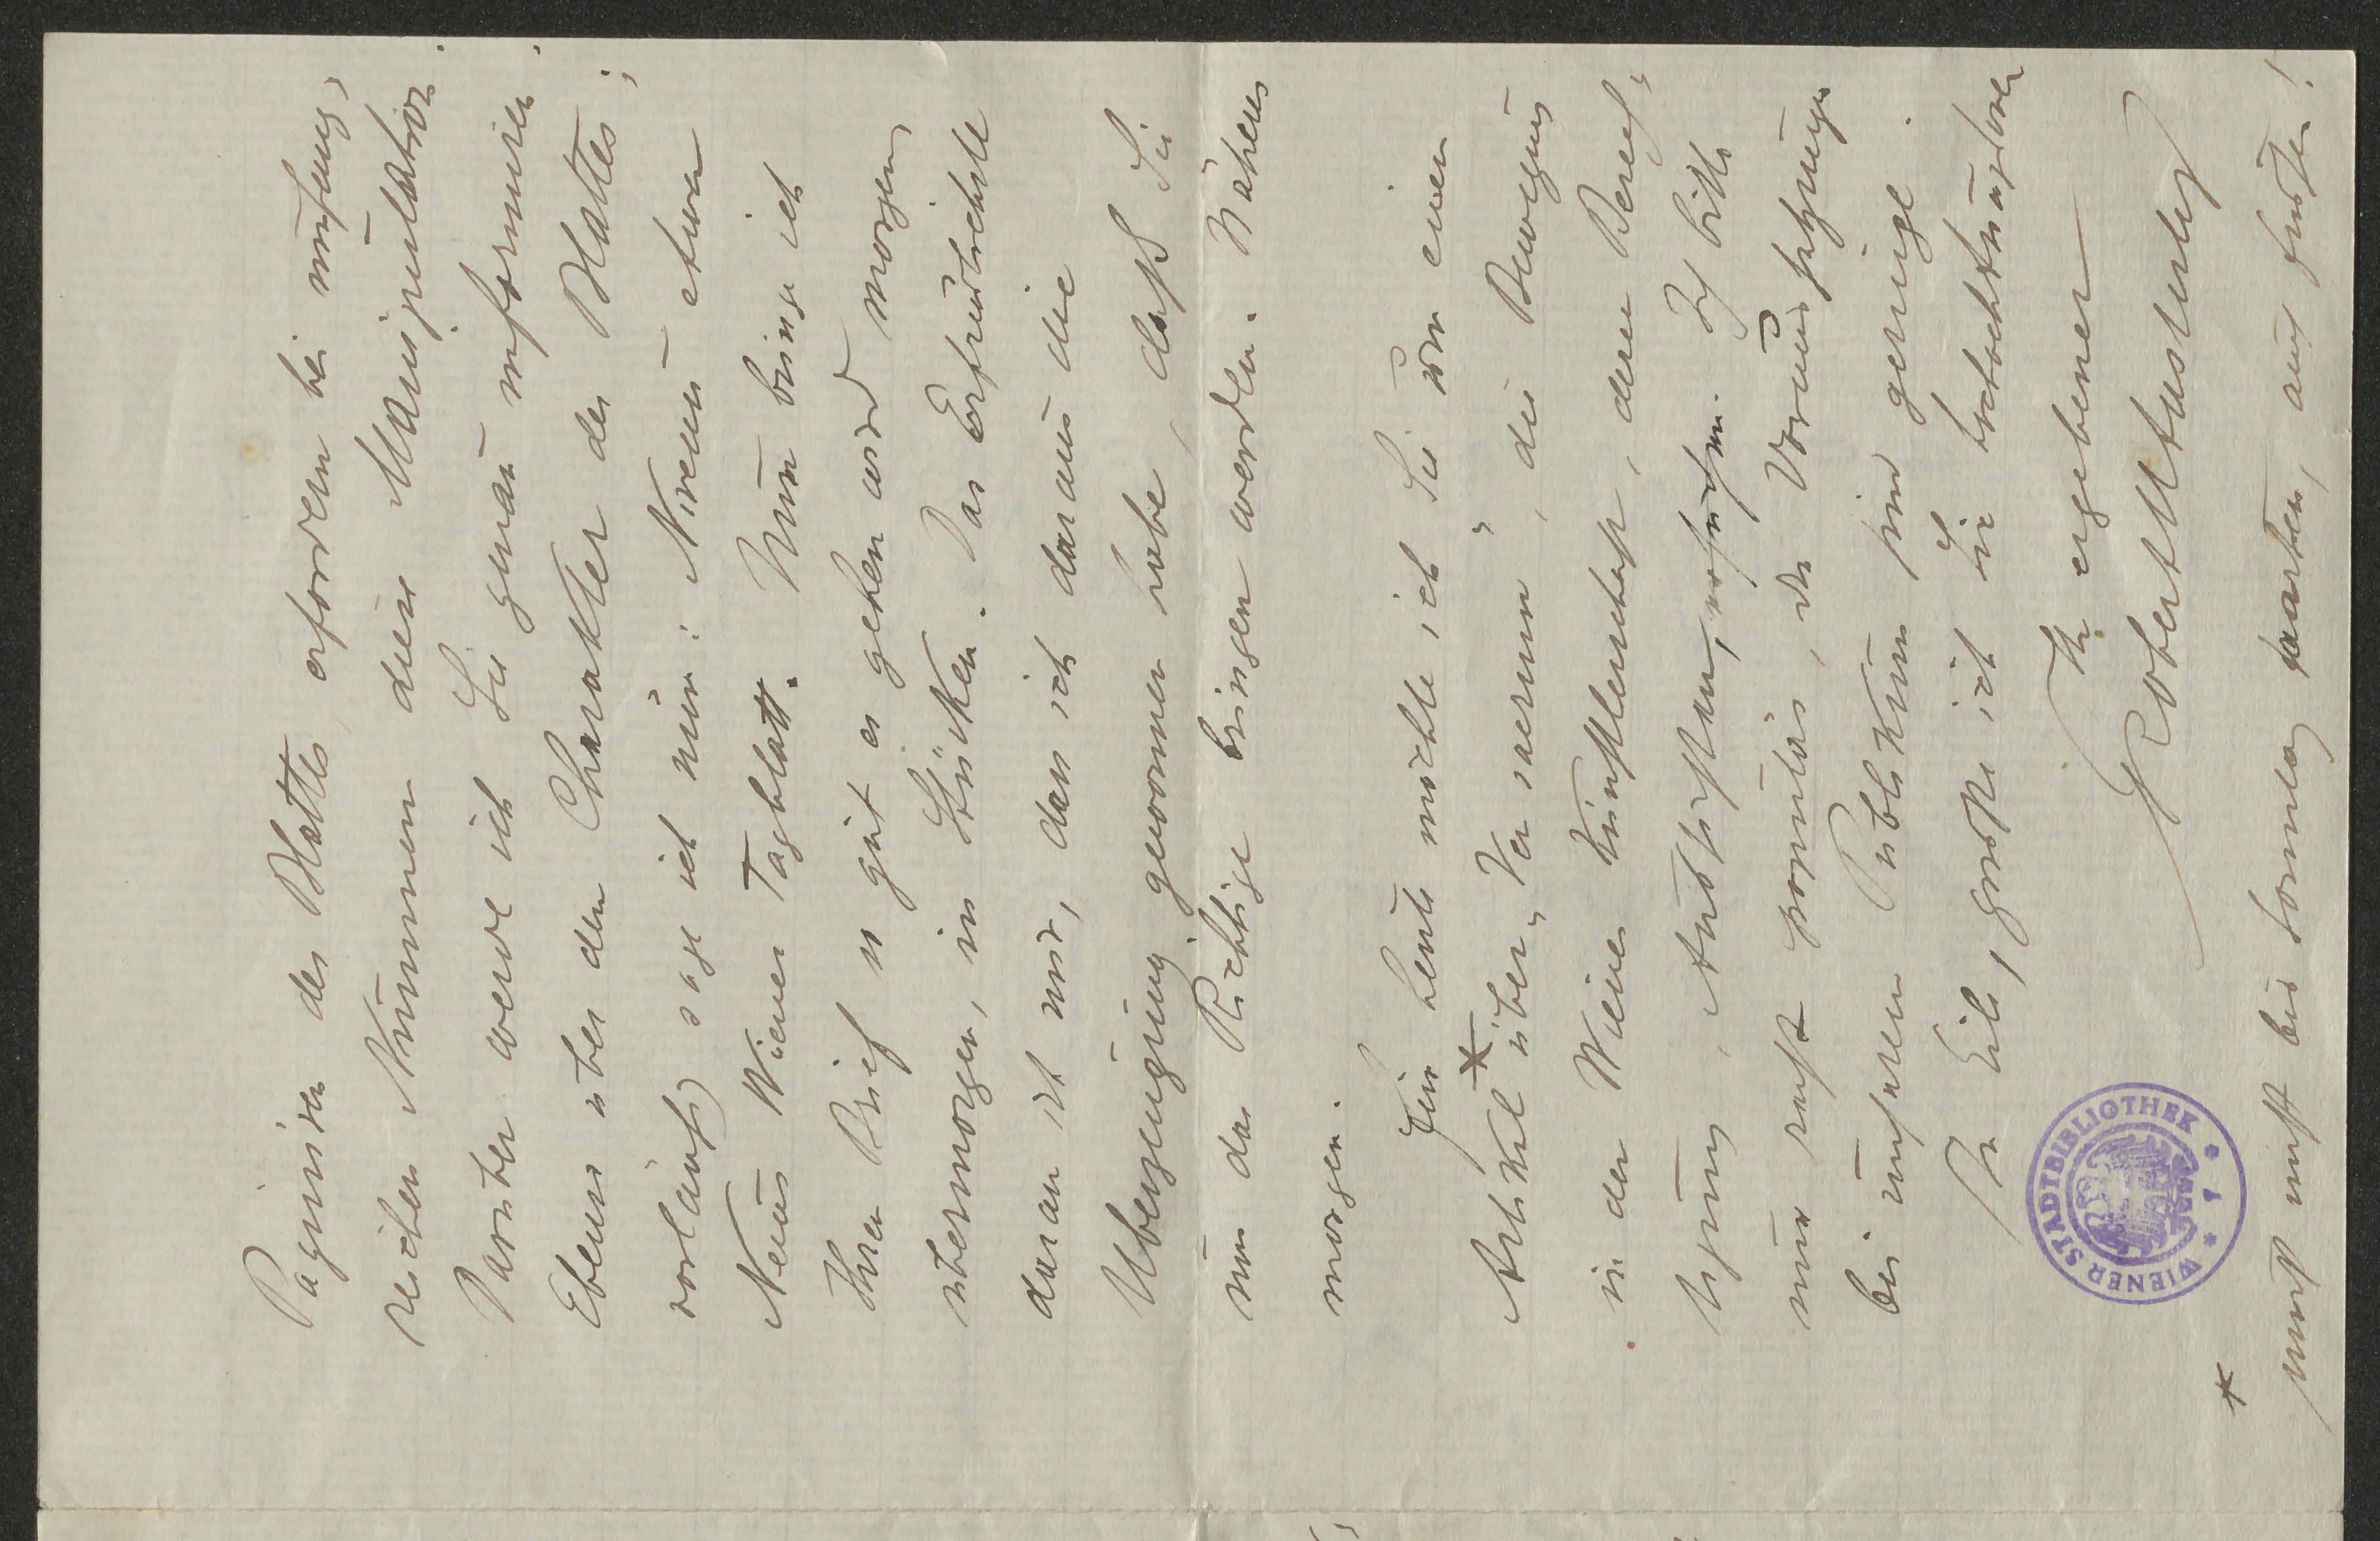 Paginiren des Blattes erfordern bei umfang-
reichen Nummern diese Manipulation.
Darüber werde ich Sie genau informieren.
Ebenso über den Charakter des Blattes;
vorläufig sage ich nur: Niveau etwa
Neues Wiener Tagblatt. Nun bringe ich
Ihren Brief so gut es gehen wird morgen,
übermorgen, in Stücken. Das Erfreulichste
daran ist mir, dass ich daraus die
Überzeugung gewonnen habe, daß Sie
nun das Richtige bringen werden. Näheres
morgen.
Für heute möchte ich Sie um einen
Artikel* über „Ver sacrum", die Bewegung
in der Wiener Künstlerschaft, deren Berech-
tigung, Aussichten, ersuchen. Ich bitte
nur recht populär, die Voraussetzungen
bei unserem Publikum sind geringe.
In Eile, grüße ich Sie hochachtungsvoll
Ihr ergebener
Robert
WIENER STADTBIBLIOTHEK
* muß nicht bis Sonntag warten, auch früher!